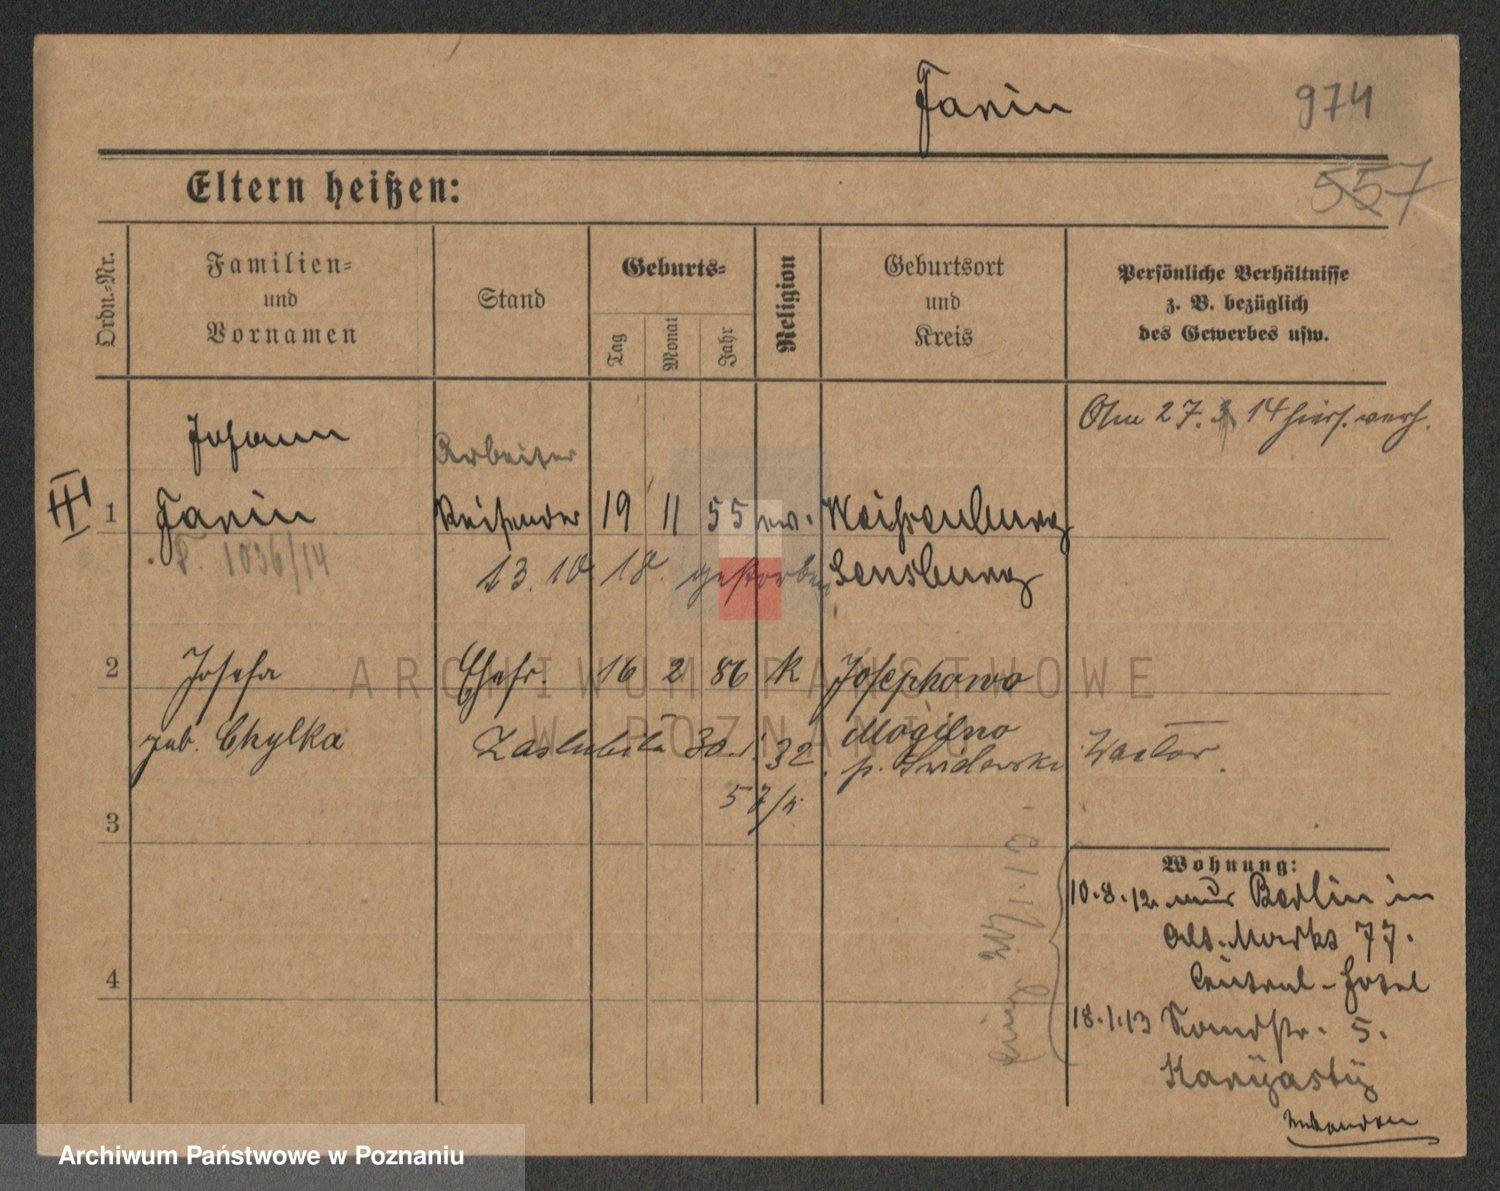 Janin
974
557
Eltern heißen:
Ordn.-Nr.
Familien-
und
Vornamen
Stand
Geburts-
Tag
Monat
Jahr
Religion
Geburtsort
und
Kreis
Persönliche Verhältnisse
z. B. bezüglich
des Gewerbes usw.
Johann
Arbeiter
Am 27. 3 14 hiers. verh.
III
1 Janin Reisender 19 11 55 ev. Weissenburg
F. 1036/14
13. 10 18. gestorben Sensburg
2 Josefa Ehefr. 16 2 86 k Josephowo
geb. Chylka
Zaslubila 30. 1. 32
Mogilno
p. Swiderski
57/
3
Wohnung:
10.8.12. aus Berlin in
Alt. Markt 77.
Central-Hotel
4
18.1.13
5.
ARCHIWUM PAŃSTWOWE
W POZNANIU
Archiwum Państwowe w Poznaniu